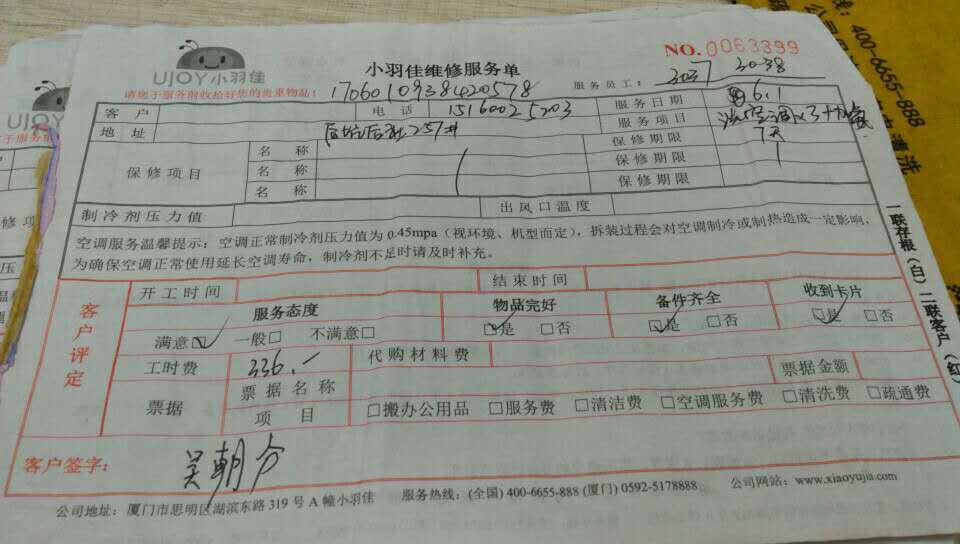 UJOY小羽佳
小羽佳维修服务单
NO.0063399
请您于服务前收拾好您的贵重物品!
17060109384420578
服务员工: 3037 3038
客户 电话 15160025203 服务日期 6.1
地址 257# 服务项目
保修项目 名称 保修期限 7天
名称 保修期限
名称 保修期限
制冷剂压力值 出风口温度
空调服务温馨提示:空调正常制冷剂压力值为0.45mpa(视环境、机型而定),拆装过程会对空调制冷或制热造成一定影响,
为确保空调正常使用延长空调寿命,制冷剂不足时请及时补充。
客户评定
开工时间 结束时间
服务态度 物品完好 备件齐全 收到卡片
满意☑ 一般□ 不满意□ ☑是 □否 ☑是 □否 ☑是 □否
工时费 336.- 代购材料费
票据 票据名称 票据金额
项目 □搬办公用品 □服务费 □清洁费 □空调服务费 □清洗费 □疏通费
客户签字: 吴朝
公司地址:厦门市思明区湖滨东路319号A幢小羽佳 服务热线:(全国) 400-6655-888 (厦门) 0592-5178888 公司网站:www.xiaoyujia.com
一联存根(白)二联客户(红)
400-6655-888
清洗